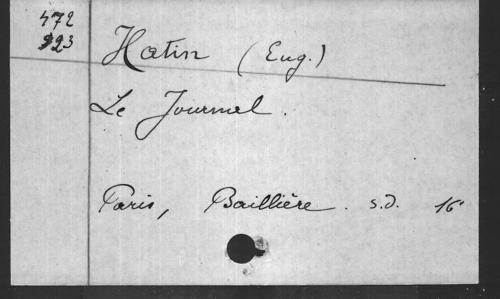 472
923
Hatin (Eug.)
Le Journal.
Paris, Baillière. s.d. 16°